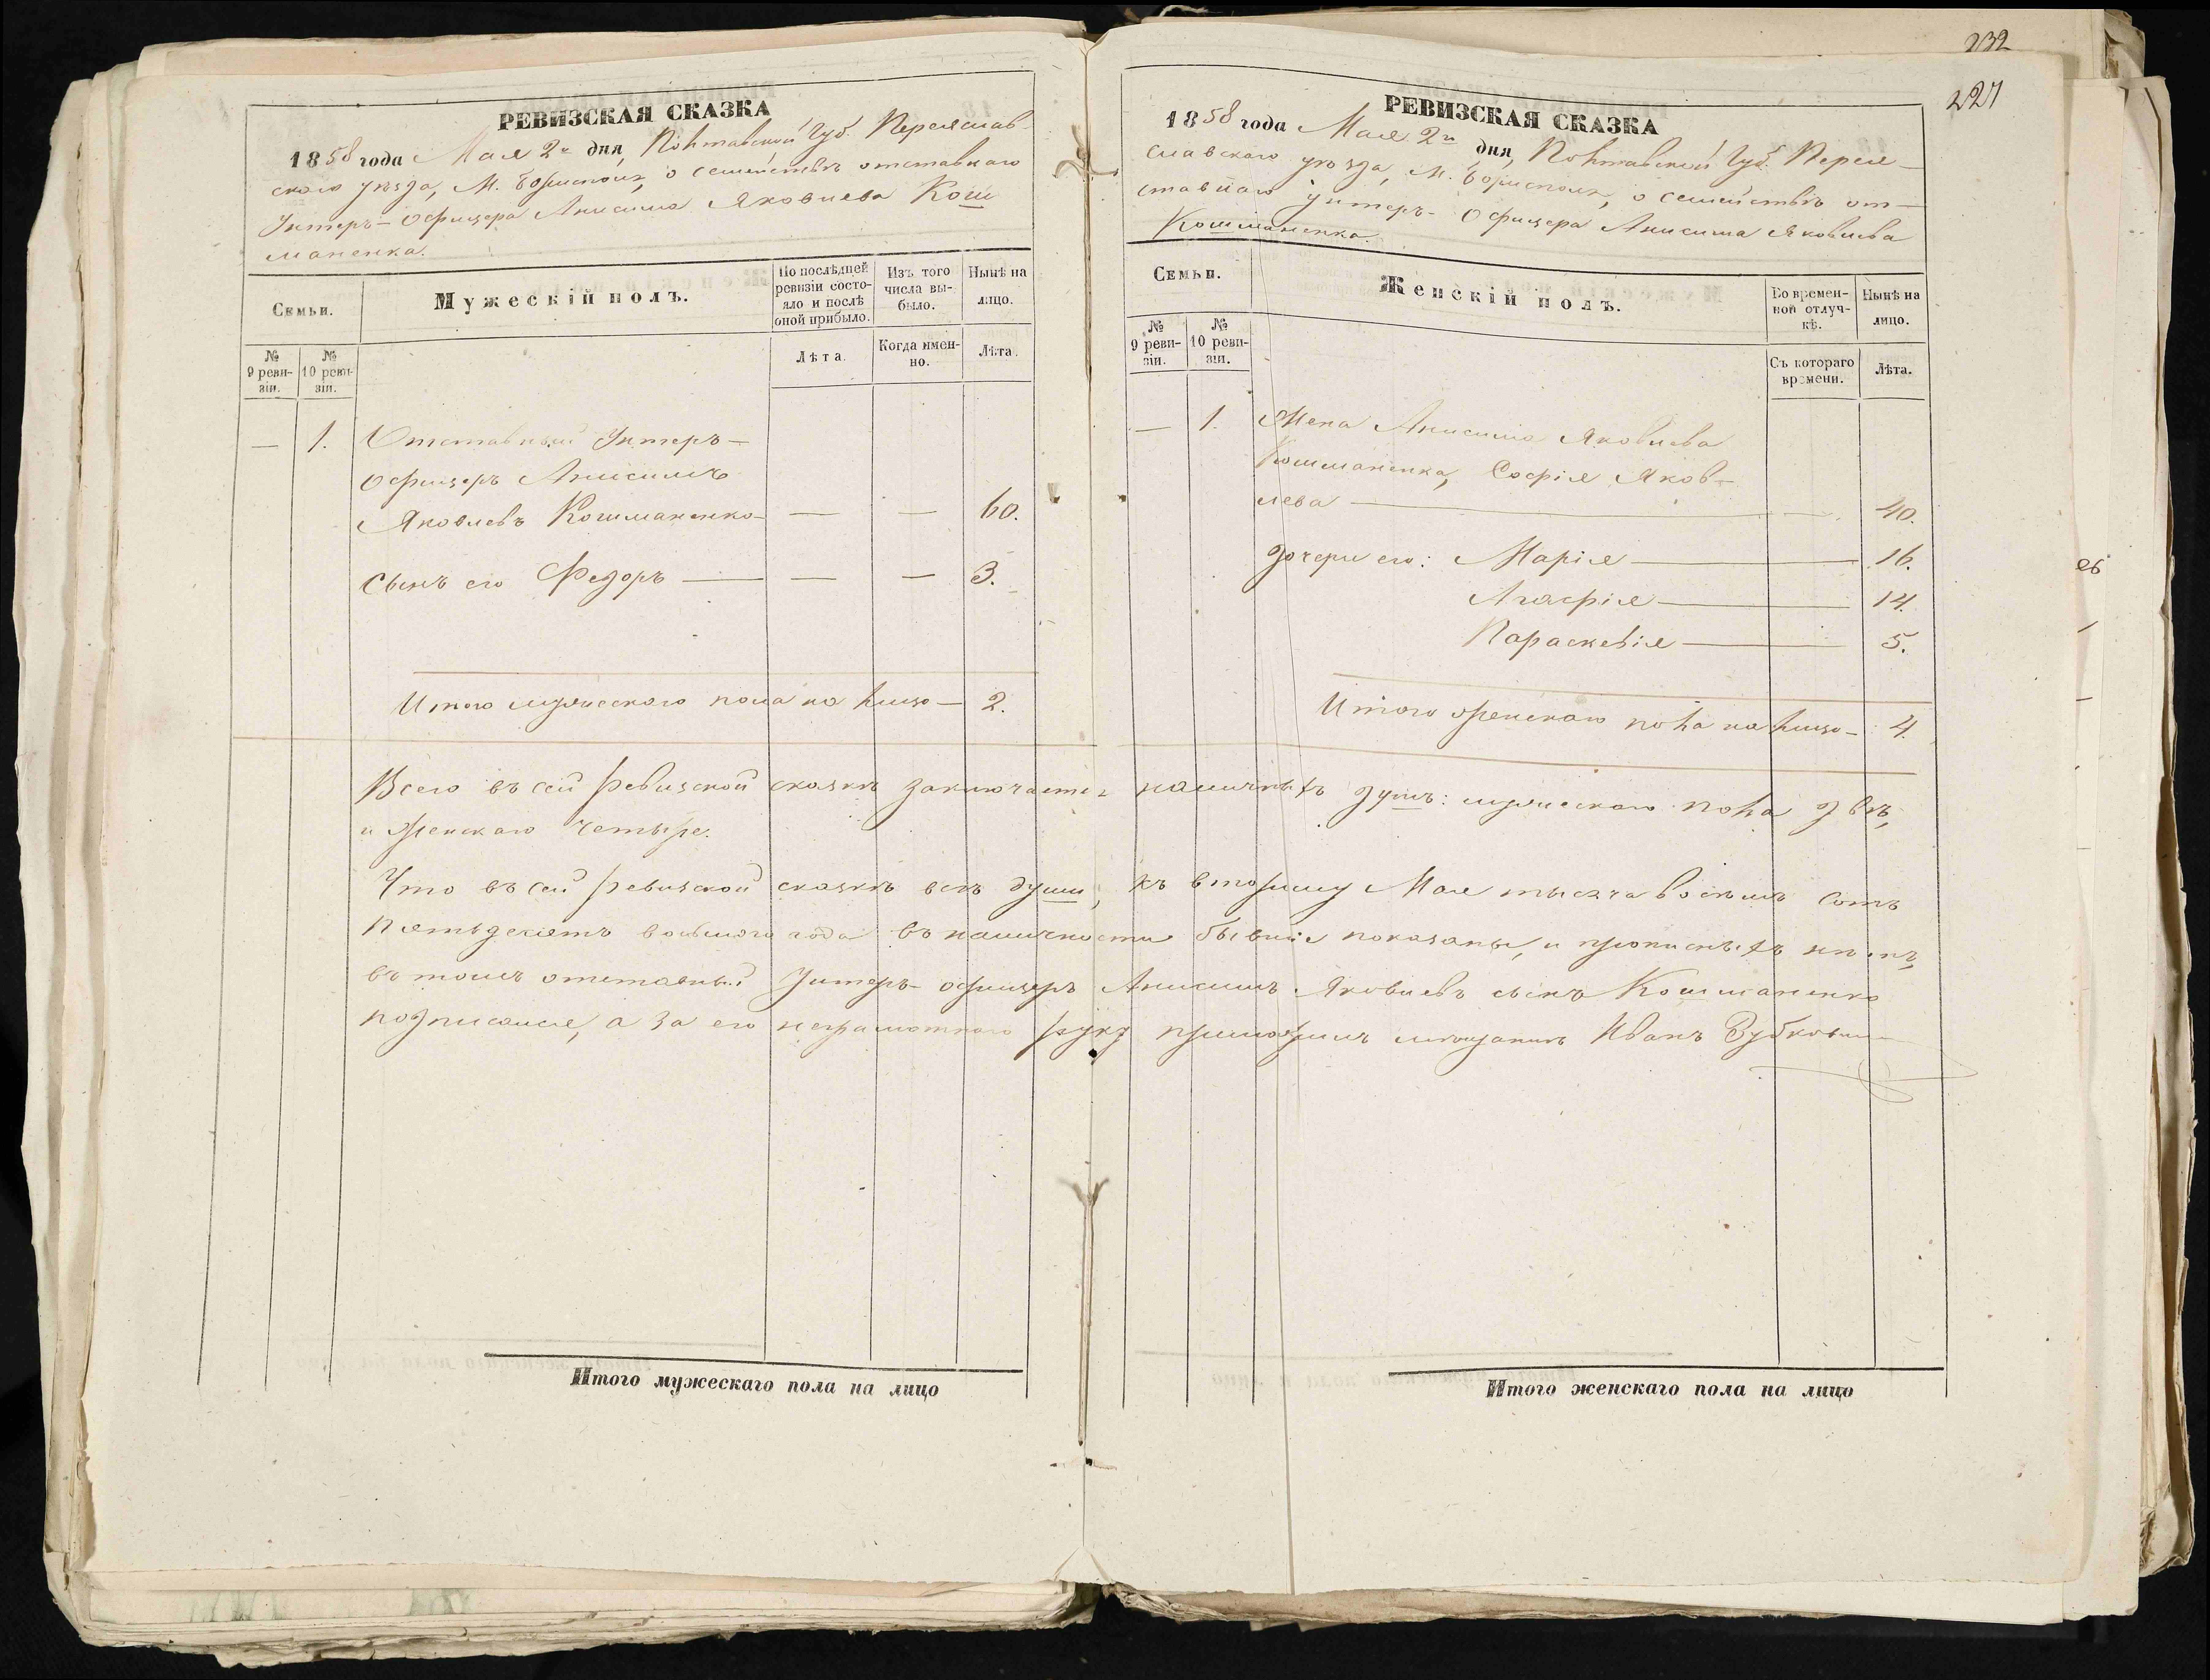 232
227
РЕВИЗСКАЯ СКАЗКА
1858 года Мая 2го дня, Полтавской Губ. Переяслав-
скаго уѣзда, М. Борисполя, о семействѣ отставнаго
Унтеръ-офицера Анисима Яковлева Кош
маненка.
Семьи.
Мужескій полъ.
По послѣдней ревизіи состояло и послѣ оной прибыло.
Изъ того числа выбыло.
Нынѣ на лицо.
№ 9 ревизіи.
№ 10 ревизіи.
Лѣта.
Когда именно.
Лѣта.
— 1. Отставный Унтеръ-
офицеръ Анисимъ
Яковлевъ Кошманенко — — — 60.
Сынъ его Федоръ — — — 3.
Итого мужескаго пола на лицо — 2.
РЕВИЗСКАЯ СКАЗКА
1858 года Мая 2го дня, Полтавской Губ. Перея-
славскаго уѣзда, М. Борисполя, о семействѣ от-
ставнаго Унтеръ-Офицера Анисима Яковлева
Кошманенка.
Семьи.
Женскій полъ.
Во временной отлучкѣ.
Нынѣ на лицо.
№ 9 ревизіи.
№ 10 ревизіи.
Съ котораго времени.
Лѣта.
— 1. Жена Анисима Яковлева
Кошманенка, Софія Яков-
лева — — 40.
Дочери его: Марія — 16.
Агафія — 14.
Параскевія — 5.
Итого женскаго пола на лицо — 4.
Всего въ сей ревизской сказкѣ заключается наличныхъ душъ: мужескаго пола двѣ,
и женскаго четыре.
Что въ сей ревизской сказкѣ всѣ души, къ второму Мая тысяча восемь сотъ
пятьдесятъ восьмого года въ наличности бывшіе показаны, и прописныхъ нѣтъ,
въ томъ отставный Унтеръ-офицеръ Анисимъ Яковлевъ сынъ Кошманенко
подписался, а за его неграмотнаго руку приложилъ мѣщанинъ Иванъ
Итого мужескаго пола на лицо
Итого женскаго пола на лицо